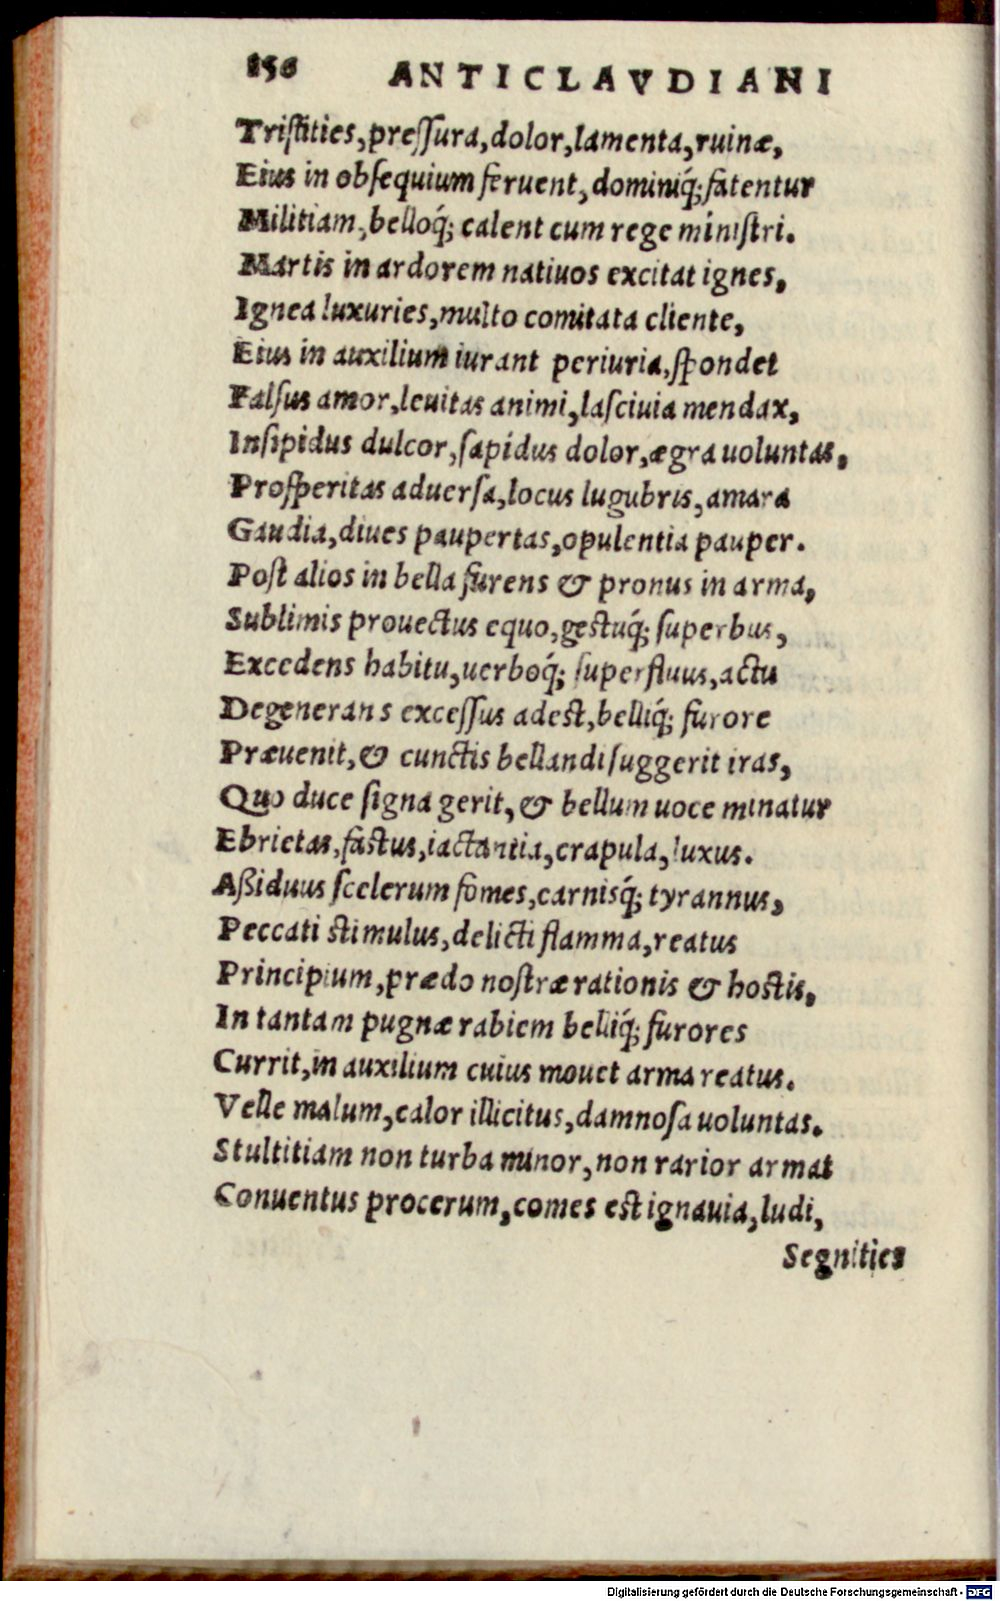 156 ANTICLAVDIANI
Triſtities,preſſura,dolor,lamenta,ruinæ,
Eius in obſequium feruent,dominiq́;fatentur
Militiam,belloq́; calent cum rege miniſtri.
Martis in ardorem natiuos excitat ignes,
Ignea luxuries,multo comitata cliente,
Eius in auxilium iurant periuria,ſpondet
Falſus amor,leuitas animi,laſciuia mendax,
Inſipidus dulcor,ſapidus dolor,ægra uoluntas,
Proſperitas aduerſa,locus lugubris,amara
Gaudia,diues paupertas,opulentia pauper.
Poſt alios in bella furens & pronus in arma,
Sublimis prouectus equo,geſtuq́; ſuperbus,
Excedens habitu,uerboq́; ſuperfluus,actu
Degenerans exceſſus adeſt,belliq́; furore
Præuenit,& cunctis bellandi ſuggerit iras,
Quo duce ſigna gerit,& bellum uoce minatur
Ebrietas,faſtus,iactantia,crapula,luxus.
Aßiduus ſcelerum fomes,carnisq́; tyrannus,
Peccati ſtimulus,delicti flamma,reatus
Principium,prædo noſtræ rationis & hoſtis,
In tantam pugnæ rabiem belliq́; furores
Currit,in auxilium cuius mouet arma reatus.
Velle malum,calor illicitus,damnoſa uoluntas.
Stultitiam non turba minor,non rarior armat
Conuentus procerum,comes eſt ignauia,ludi,
Segnities
Digitalisierung gefördert durch die Deutsche Forschungsgemeinschaft - DFG